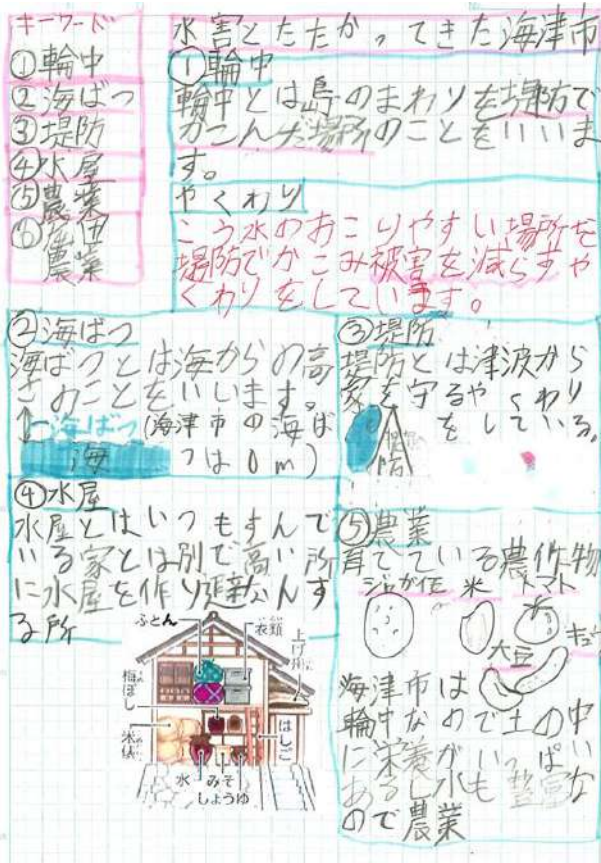 キーワード
①輪中
②海ばつ
③堤防
④水屋
⑤農業
⑥産伝
農業
水害とたたかってきた海津市
①輪中
輪中とは島のまわりを堤防で
かこんだ場所のことをいいま
す。
やくわり
こう水のおこりやすい場所を
堤防でかこみ被害を減らすや
くわりをしています。
②海ばつ
海ばつとは海からの高
さのことをいいます。
海ばつ
(海津市の海ば
つは0m)
海
③堤防
堤防とは津波から
家を守るやくわり
をしている。
④水屋
水屋とはいつもすんで
いる家とは別で高い所
に水屋を作り避なんす
る所
ふとん
衣類
上げ舟
梅ぼし
米俵
はしご
水
みそ
しょうゆ
⑤農業
育てている農作物
ジャガ佢
米
トマト
大豆
キュー
海津市は
輪中なので土の中
に栄養がいっぱい
あるし水も豊富な
ので農業